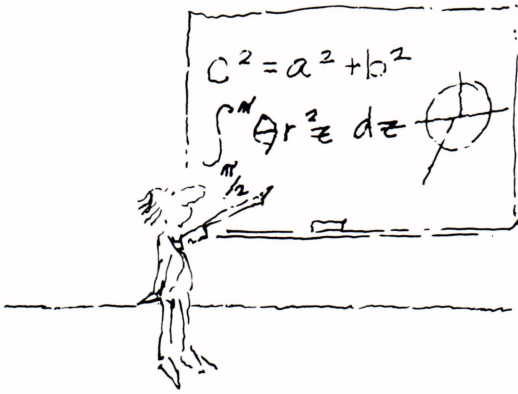 c² = a² + b²
∫π/2^π θr²z dz